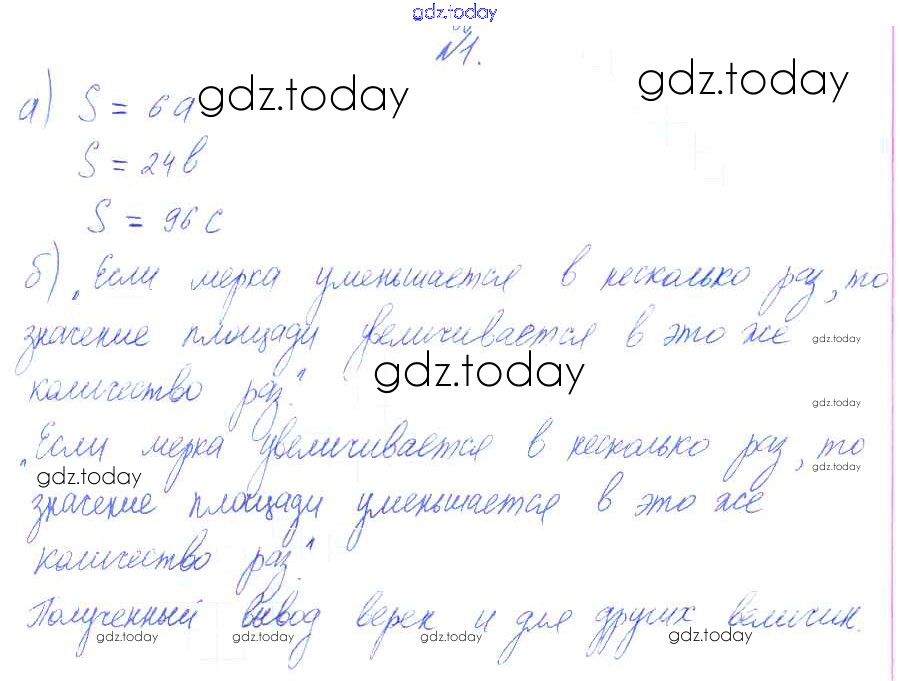 gdz.today
№1.
а) S = 6a gdz.today gdz.today
S = 24b
S = 96c
б) „Если мерка уменьшается в несколько раз, то
значение площади увеличивается в это же gdz.today
количество раз". gdz.today gdz.today
„Если мерка увеличивается в несколько раз, то gdz.today
gdz.today
значение площади уменьшается в это же
количество раз".
Полученный вывод верен и для других величин.
gdz.today gdz.today gdz.today gdz.today gdz.today